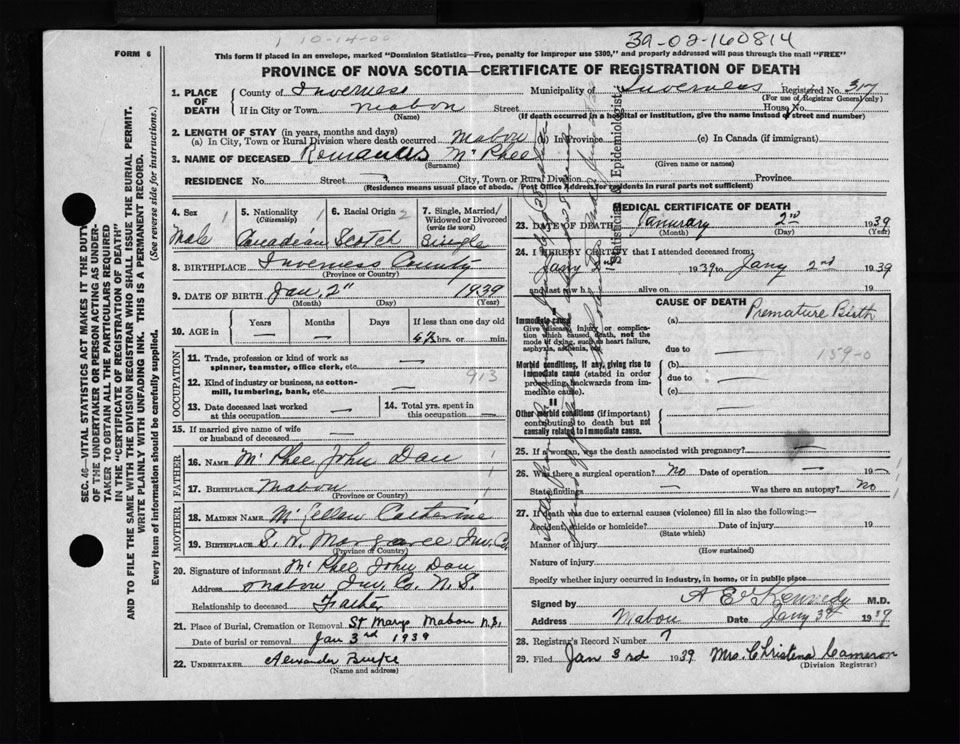 10-14-00
39-02-160814
FORM 6
This form if placed in an envelope, marked "Dominion Statistics—Free, penalty for improper use $300," and properly addressed will pass through the mail "FREE"
PROVINCE OF NOVA SCOTIA—CERTIFICATE OF REGISTRATION OF DEATH
1. PLACE OF DEATH
County of Inverness Municipality of Inverness Registered No. 317
(For use of Registrar General only)
If in City or Town Mabou Street House No.
(Name) (If death occurred in a hospital or institution, give the name instead of street and number)
2. LENGTH OF STAY (in years, months and days)
(a) In City, Town or Rural Division where death occurred Mabou (b) In Province (c) In Canada (if immigrant)
3. NAME OF DECEASED McPhee
(Surname) (Given name or names)
RESIDENCE No. Street City, Town or Rural Division Province
(Residence means usual place of abode. Post Office Address for residents in rural parts not sufficient)
4. Sex 1
Male
5. Nationality 1
(Citizenship)
Canadian
6. Racial Origin 2
Scotch
7. Single, Married, Widowed or Divorced
(write the word)
Single
8. BIRTHPLACE Inverness County
(Province or Country)
9. DATE OF BIRTH Jan. 2" 1939
(Month) (Day) (Year)
10. AGE in Years Months Days If less than one day old
— — hrs. or min.
OCCUPATION
11. Trade, profession or kind of work as spinner, teamster, office clerk, etc. —
12. Kind of industry or business, as cotton-mill, lumbering, bank, etc. — 913
13. Date deceased last worked at this occupation —
14. Total yrs. spent in this occupation —
15. If married give name of wife or husband of deceased —
FATHER
16. NAME McPhee John Dan
17. BIRTHPLACE Mabou
(Province or Country)
MOTHER
18. MAIDEN NAME McLellan Catherine
19. BIRTHPLACE S. W. Margaree Inv. Co.
(Province or Country)
20. Signature of informant McPhee John Dan
Address Mabou Inv. Co. N.S.
Relationship to deceased Father
21. Place of Burial, Cremation or Removal St Marys Mabou N.S.
Date of burial or removal Jan 3rd 1939
22. UNDERTAKER Alexander Burke
(Name and address)
MEDICAL CERTIFICATE OF DEATH
23. DATE OF DEATH January 2nd 1939
(Month) (Day) (Year)
24. I HEREBY CERTIFY that I attended deceased from:
Jany 2nd 1939 to Jany 2nd 1939
and last saw h alive on 19
CAUSE OF DEATH
Immediate cause
Give disease, injury or complication which caused death, not the mode of dying, such as heart failure, asphyxia, asthenia, etc.
(a) Premature Birth
due to —
159-0
Morbid conditions, if any, giving rise to immediate cause (stated in order proceeding backwards from immediate cause).
(b)
due to —
(c) —
II
Other morbid conditions (if important) contributing to death but not causally related to immediate cause.
25. If a woman, was the death associated with pregnancy? —
26. Was there a surgical operation? no Date of operation — 19—
State findings — Was there an autopsy? no
27. If death was due to external causes (violence) fill in also the following:—
Accident, suicide or homicide? Date of injury 19
(State which)
Manner of injury
(How sustained)
Nature of injury
Specify whether injury occurred in industry, in home, or in public place
Signed by Kennedy M.D.
Address Mabou Date Jany 3rd 1939
28. Registrar's Record Number 7
29. Filed Jan 3rd 1939 Mrs. Christena Cameron
(Division Registrar)
SEC. 46—VITAL STATISTICS ACT MAKES IT THE DUTY
OF THE UNDERTAKER OR PERSON ACTING AS UNDER-
TAKER TO OBTAIN ALL THE PARTICULARS REQUIRED
IN THE "CERTIFICATE OF REGISTRATION OF DEATH"
AND TO FILE THE SAME WITH THE DIVISION REGISTRAR WHO SHALL ISSUE THE BURIAL PERMIT.
WRITE PLAINLY WITH UNFADING INK. THIS IS A PERMANENT RECORD.
Every item of information should be carefully supplied. (See reverse side for instructions.)
Statistician & Epidemiologist